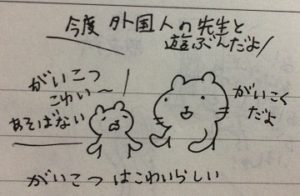 今度 外国人の先生と
遊ぶんだよ/
がいこつ
こわい〜
あそばない
がいこく
だよ
がいこつ はこわいらしい